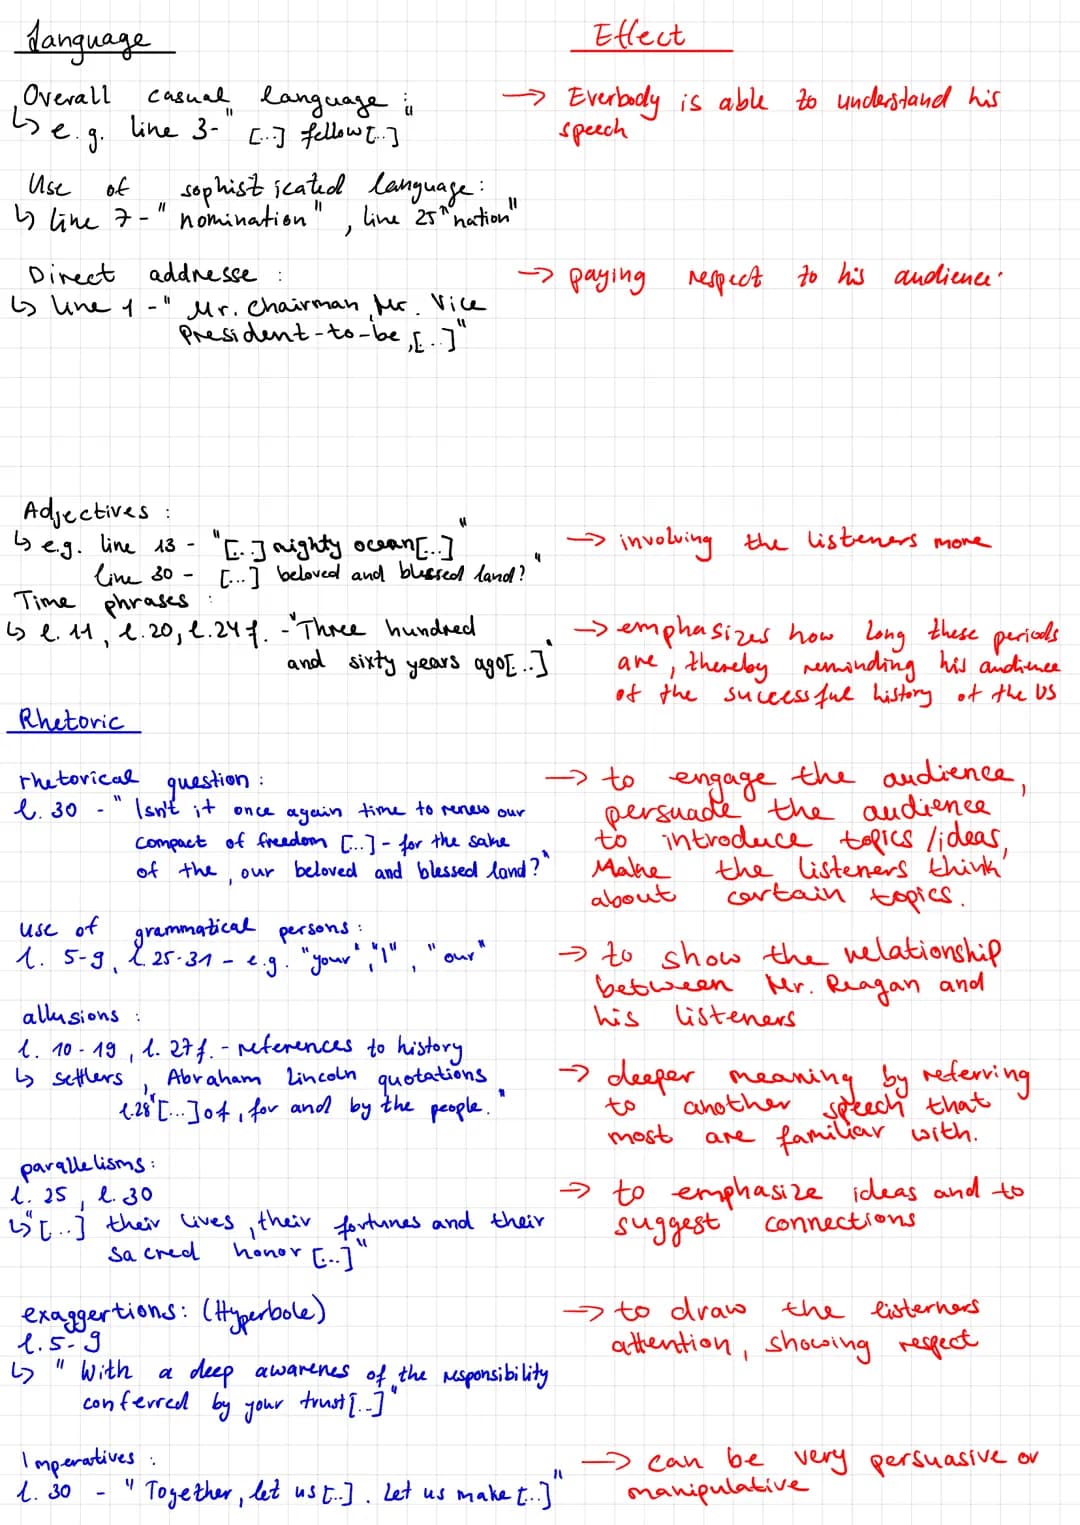 Language
Effect
Overall casual language :
↳ e.g. line 3-" [..] fellow [..]"
→ Everbody is able to understand his
speech
Use of sophisticated language :
↳ line 7 - "nomination" , line 25 "nation"
Direct addresse :
↳ line 1 - " Mr. Chairman, Mr. Vice
President-to-be, [..]"
→ paying respect to his audience.
Adjectives :
↳ e.g. line 13 - "[..] mighty ocean [..]"
line 30 - [...] beloved and blessed land?"
→ involving the listeners more
Time phrases :
↳ l. 11, l. 20, l. 24 f. - "Three hundred
and sixty years ago [..]"
→ emphasizes how long these periods
are, thereby reminding his audience
of the successful history of the US
Rhetoric
rhetorical question :
l. 30 - " Isn't it once again time to renew our
compact of freedom [..] - for the sake
of the , our beloved and blessed land?"
→ to engage the audience,
persuade the audience
to introduce topics /ideas,
Make the listeners think
about certain topics.
use of grammatical persons :
l. 5-9, l. 25-31 - e.g. "your", "I", "our"
→ to show the relationship
between Mr. Reagan and
his listeners
allusions :
l. 10-19, l. 27 f. - references to history
↳ settlers, Abraham Lincoln quotations
l.28 "[...] of, for and by the people."
→ deeper meaning by referring
to another speech that
most are familiar with.
parallelisms :
l. 25, l. 30
↳ "[..] their lives, their fortunes and their
sacred honor [..]"
→ to emphasize ideas and to
suggest connections
exaggertions: (Hyperbole)
l. 5-9
↳ " With a deep awarenes of the responsibility
conferred by your trust [..]"
→ to draw the listerners
attention, showing respect
Imperatives :
l. 30 - " Together, let us [..]. Let us make [..]"
→ can be very persuasive or
manipulative